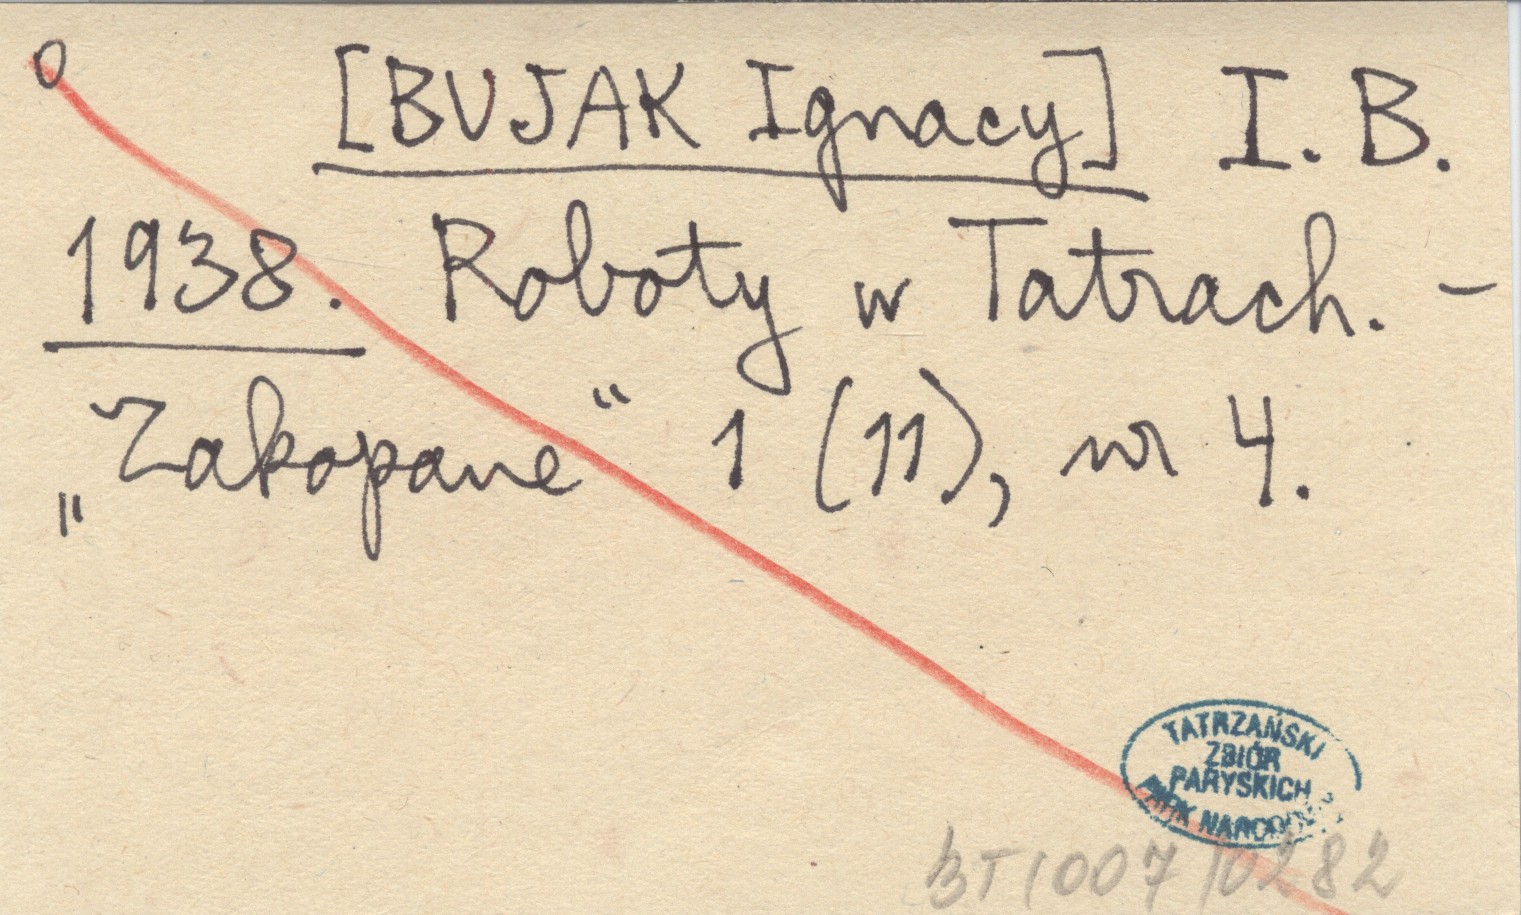 0 [BUJAK Ignacy] I. B.
1938. Roboty w Tatrach. -
„Zakopane“ 1 (11), nr 4.
TATRZAŃSKI
ZBIÓR
PARYSKICH
PARK NARODOWY
BT/007/0282